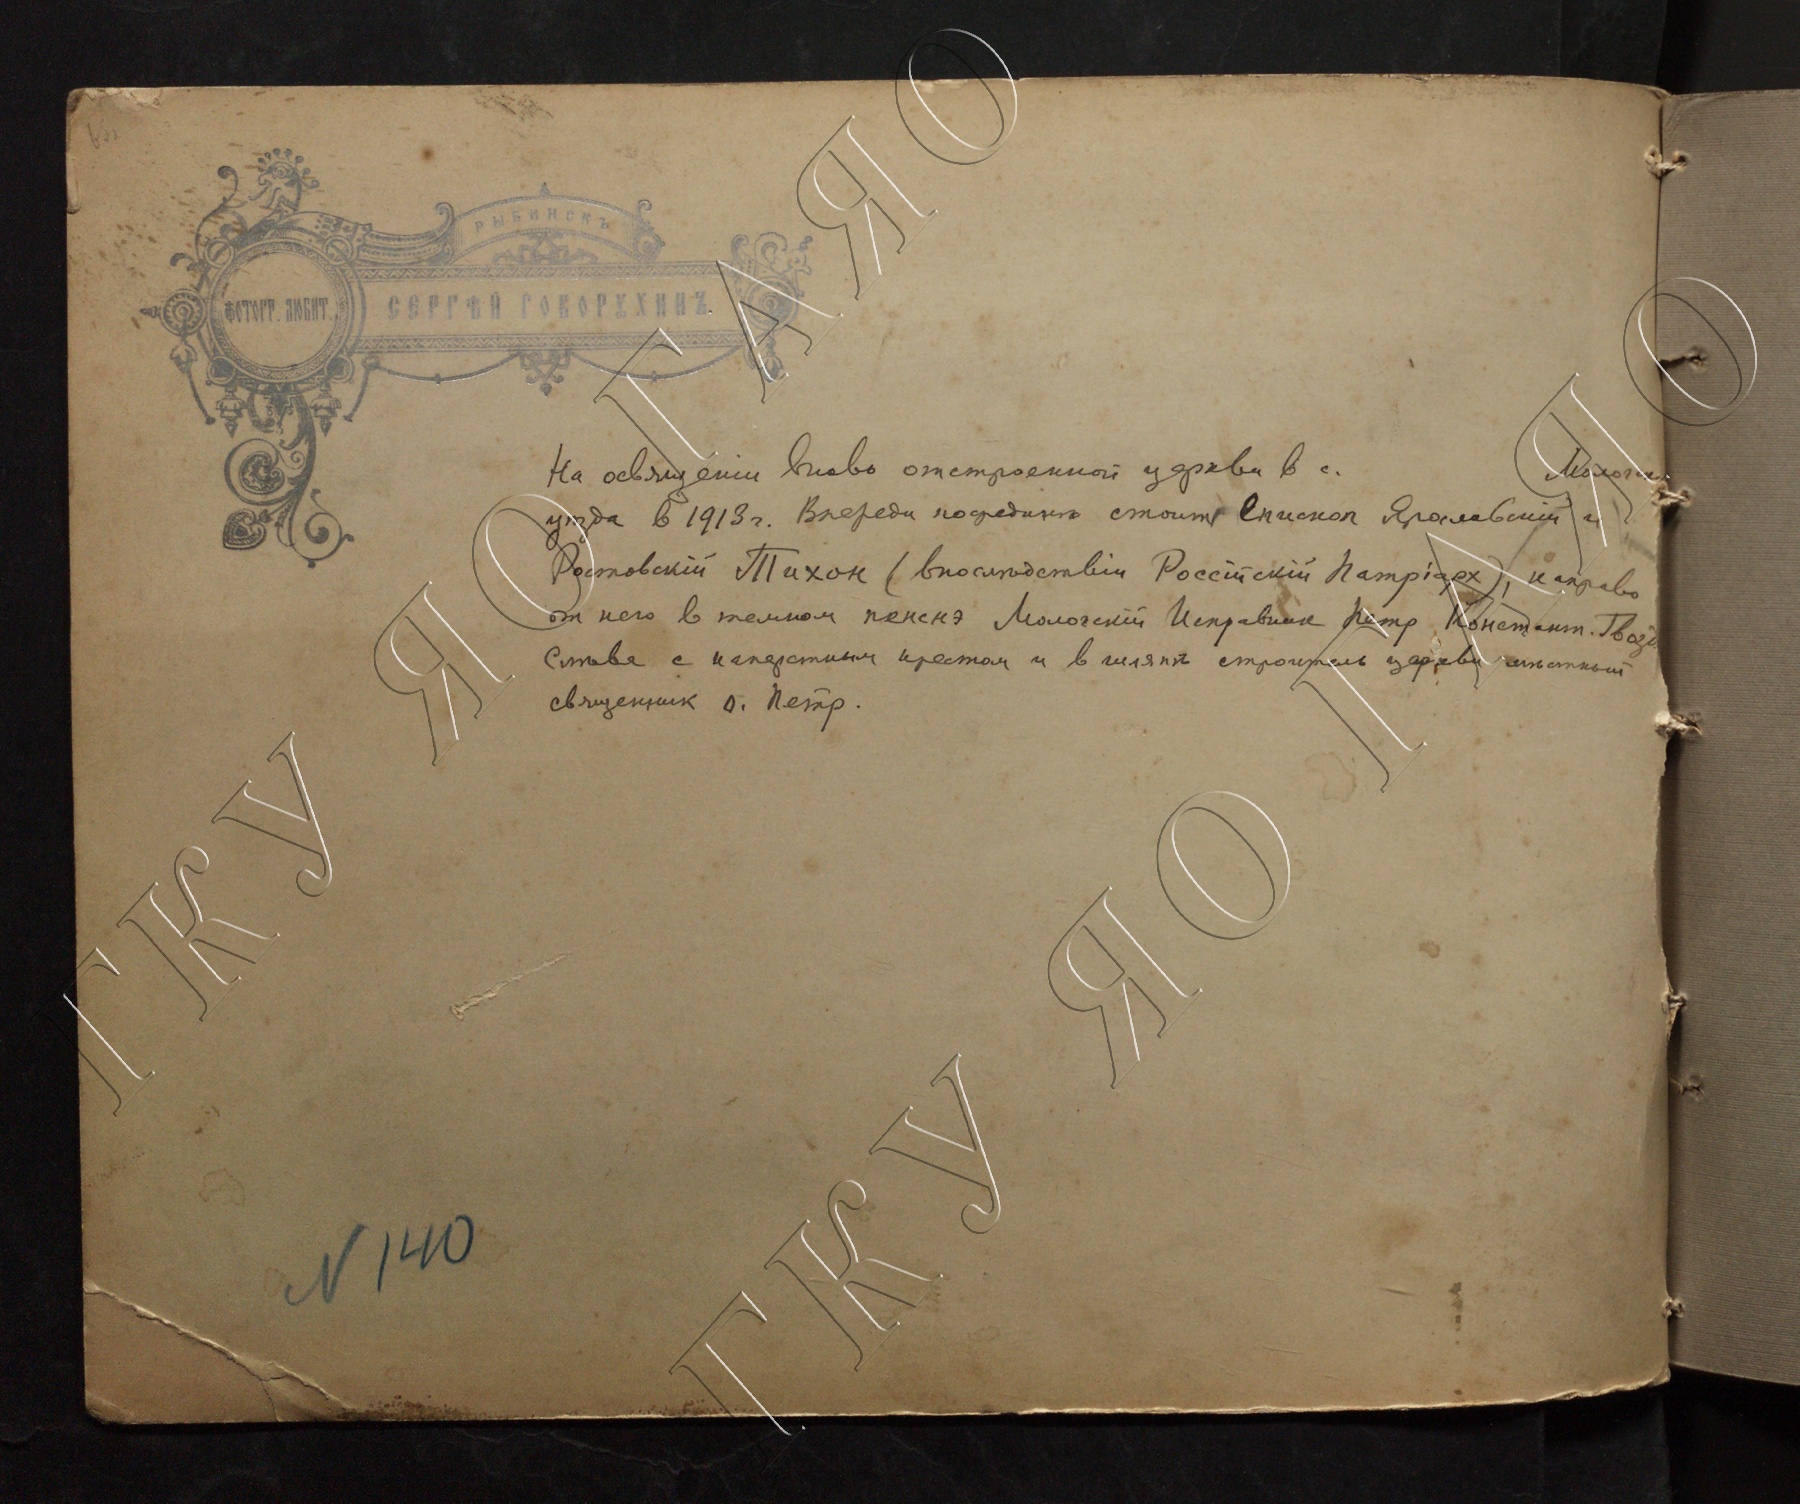 РЫБИНСКЪ
ФОТОГР. ЛЮБИТ.
СЕРГѢЙ ГОВОРУХИНЪ.
На освященіи вновь отстроенной церкви в с. Мологск
уѣзда в 1913 г. Впереди посрединѣ стоит Епископ Ярославскій и
Ростовскій Тихон (впослѣдствіи Россійскій Патріарх), направо
от него в темном пенснэ Мологскій Исправник Петр Констант. Гвозд
Слѣва с наперстным крестом и в шляпѣ строитель церкви мѣстный
священник о. Петр.
N 140
ГКУ ЯО ГАЯО
ГКУ ЯО ГАЯО